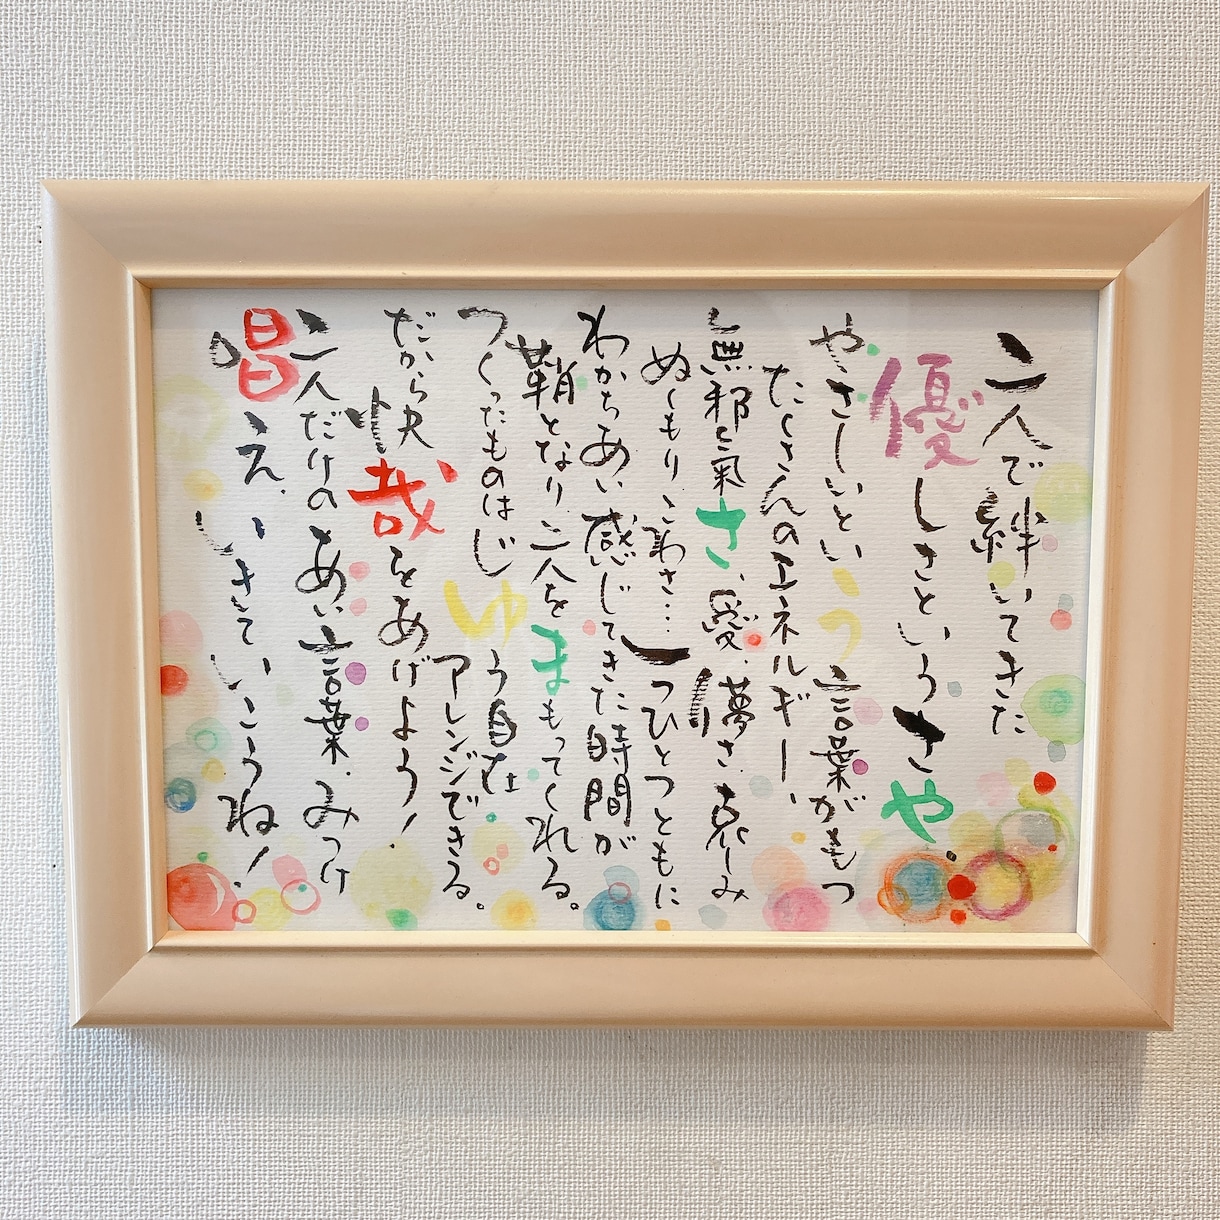 二人で絆いてきた
優しさというさや
やさしいという言葉がもつ
たくさんのエネルギー、
無邪氣さ、愛、儚さ、哀しみ
ぬくもり、こわさ…一つひとつともに
わかちあい感じてきた時間が
鞘となり二人をまもってくれる。
つくったものはじゆう自在アレンジできる。
だから快哉をあげよう!
二人だけのあい言葉、みつけ
唱え、いきていこうね!